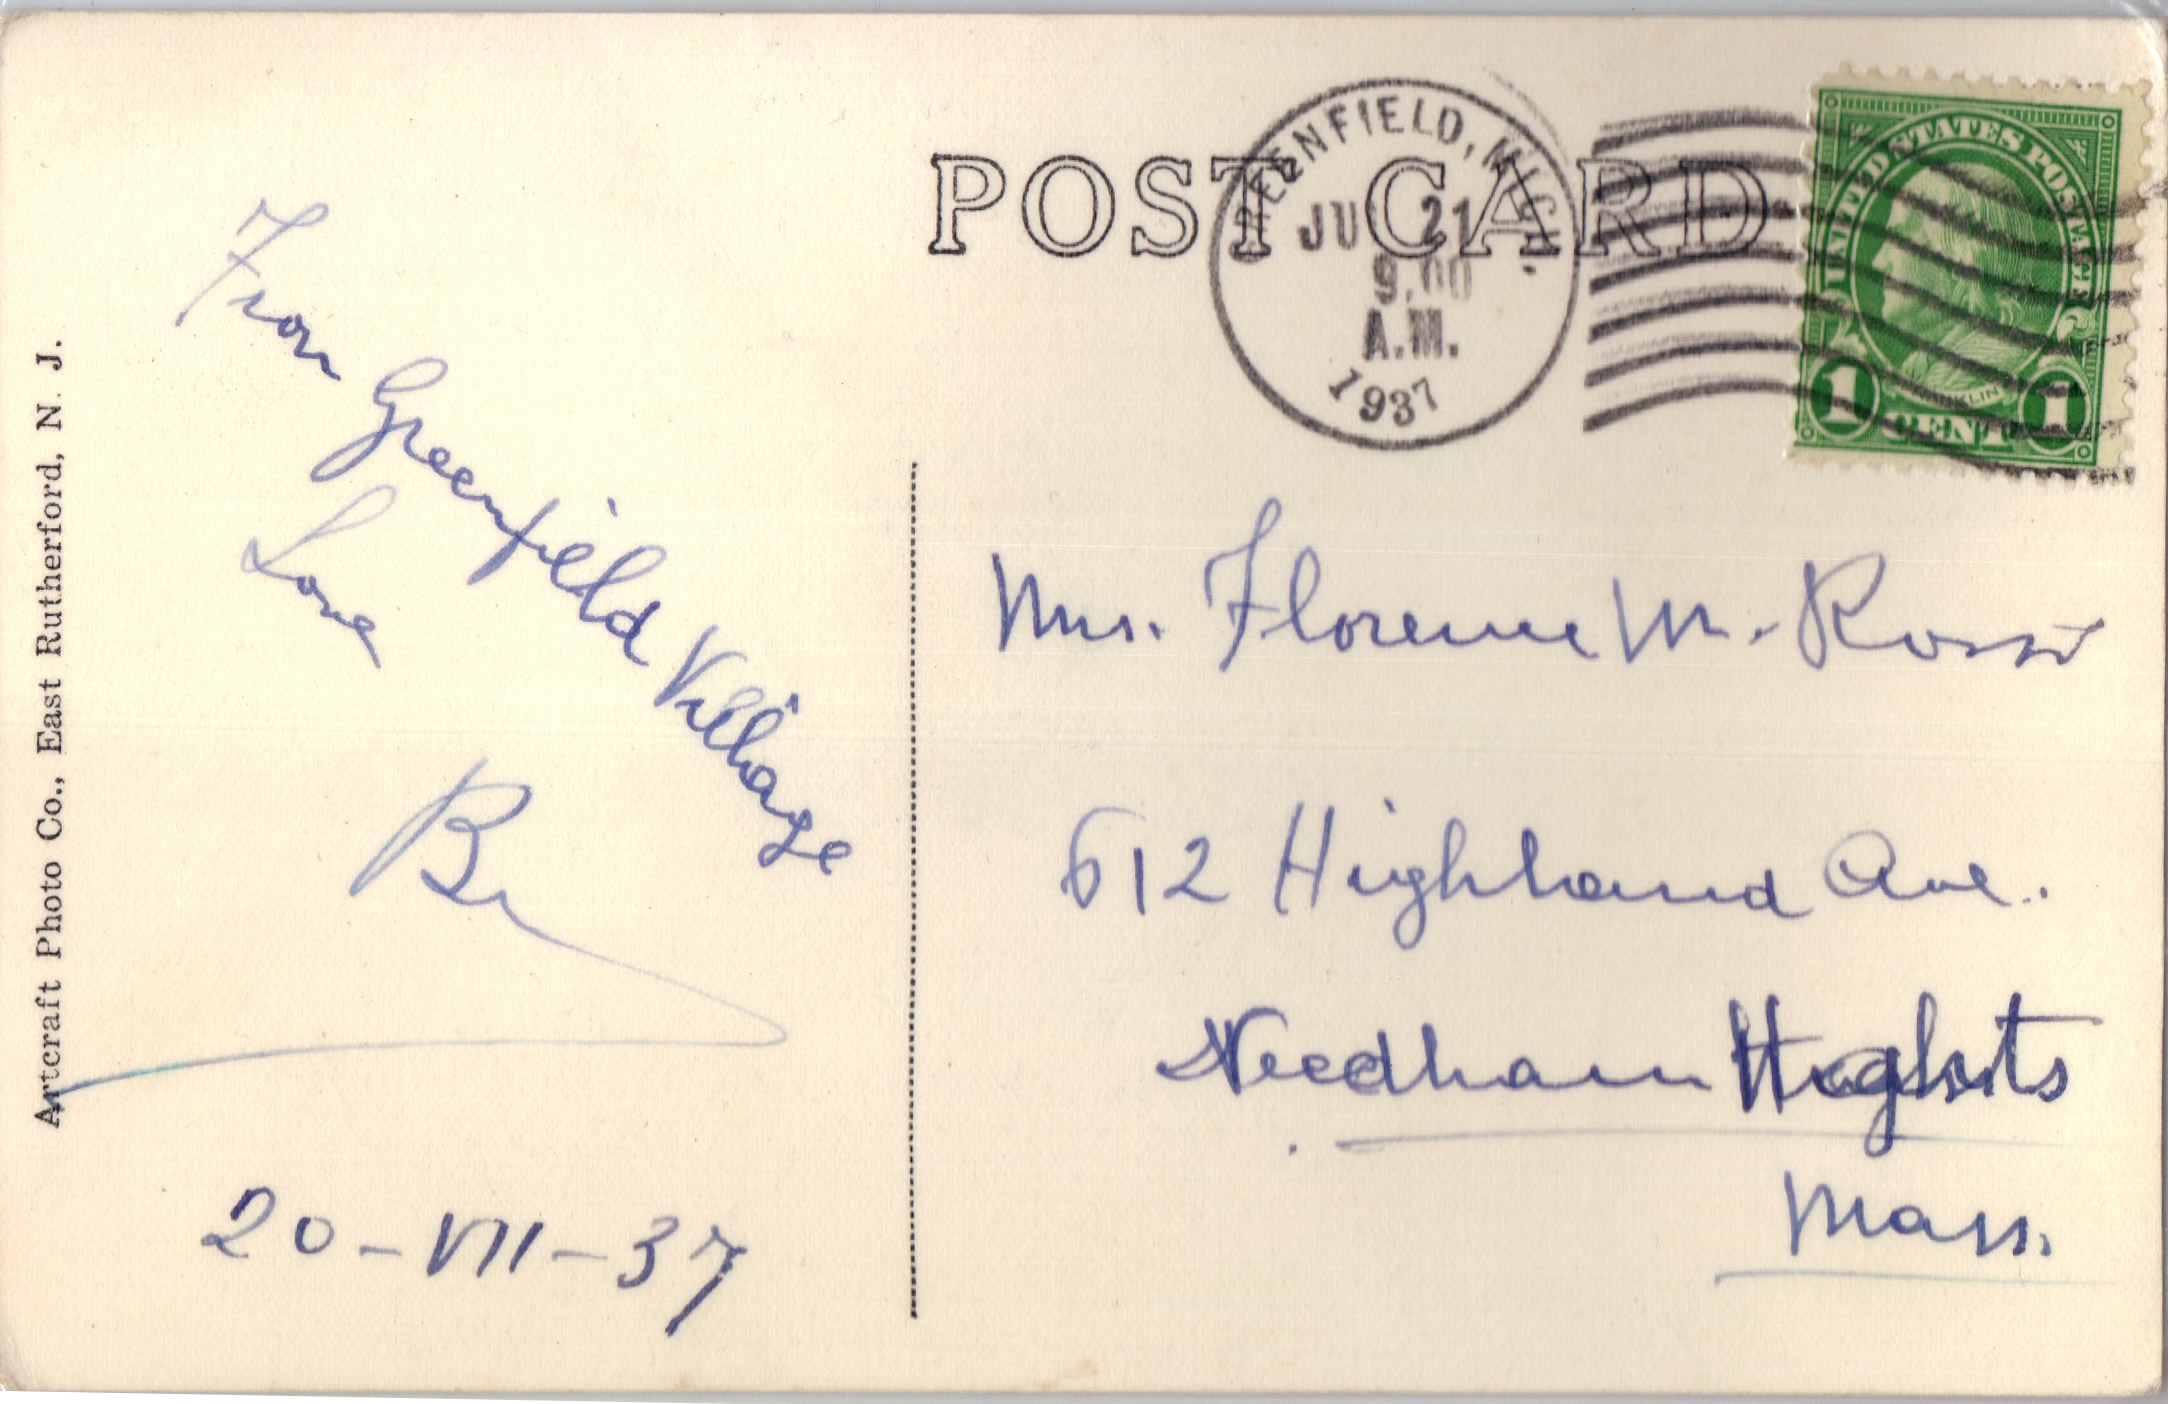 POST CARD
GREENFIELD, MICH.
JUL 21
9.00
A.M.
1937
UNITED STATES POSTAGE
FRANKLIN
1 CENT 1
From Greenfield Village
Love
20-VII-37
Mrs. Florence M. Ross
612 Highland Ave.
Needham Heights
Mass.
Artcraft Photo Co., East Rutherford, N. J.